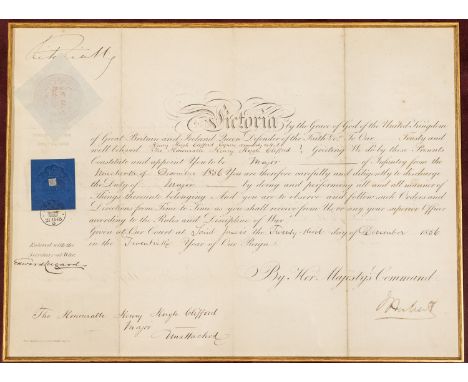 Victoria by the Grace of God of the United Kingdom
of Great Britain and Ireland Queen Defender of the Faith &c. To Our Trusty and
well beloved The Honourable Henry Hugh Clifford, Greeting We do by these Presents
Constitute and appoint You to be Major of Infantry from the
December 1856 You are therefore carefully and diligently to discharge
the Duty of Major by doing and performing all and all manner of
Things thereunto belonging And you are to observe and follow such Orders and
Directions from Time to Time as you shall receive from Us or any your superior Officer
according to the Rules and Discipline of War
Given at Our Court at Saint James's the Twenty third day of December 1856
in the Twentieth Year of Our Reign
By Her Majesty's Command
Entered with the
Secretary at War
The Honourable Henry Hugh Clifford
Major
Unattached